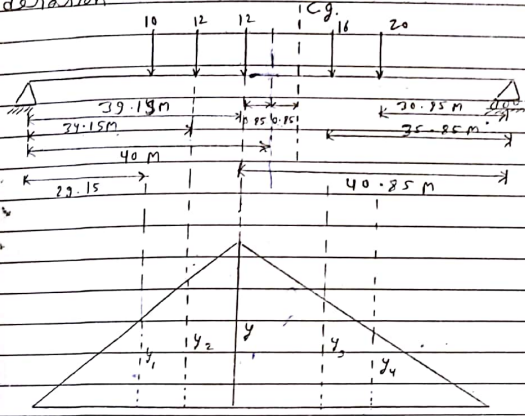 Cg.
10 12 12 16 20
39.15M 0.85 0.85 30.85 M
34.15M 35.85 M
40 M
29.15 40.85 M
y1 y2 y y3 y4